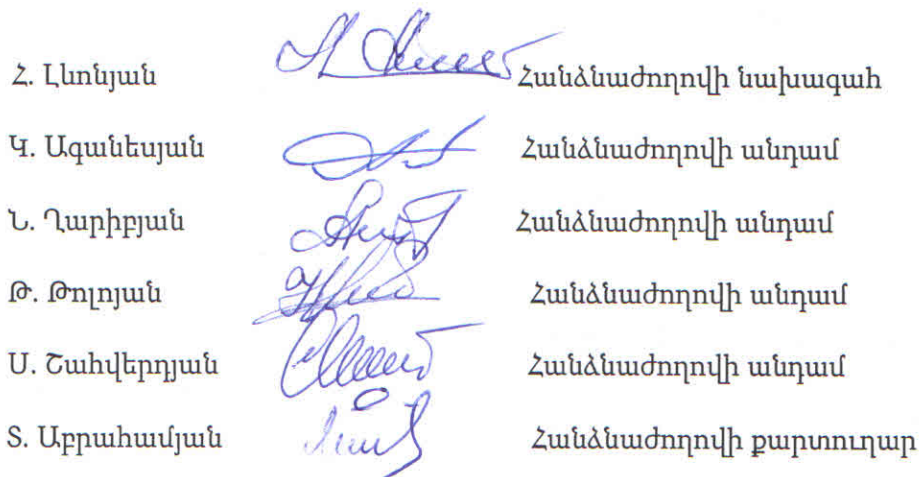 Հ. Լևոնյան Հանձնաժողովի նախագահ
Կ. Ագանեսյան Հանձնաժողովի անդամ
Ն. Ղարիբյան Հանձնաժողովի անդամ
Թ. Թոլոյան Հանձնաժողովի անդամ
Ս. Շահվերդյան Հանձնաժողովի անդամ
Տ. Աբրահամյան Հանձնաժողովի քարտուղար